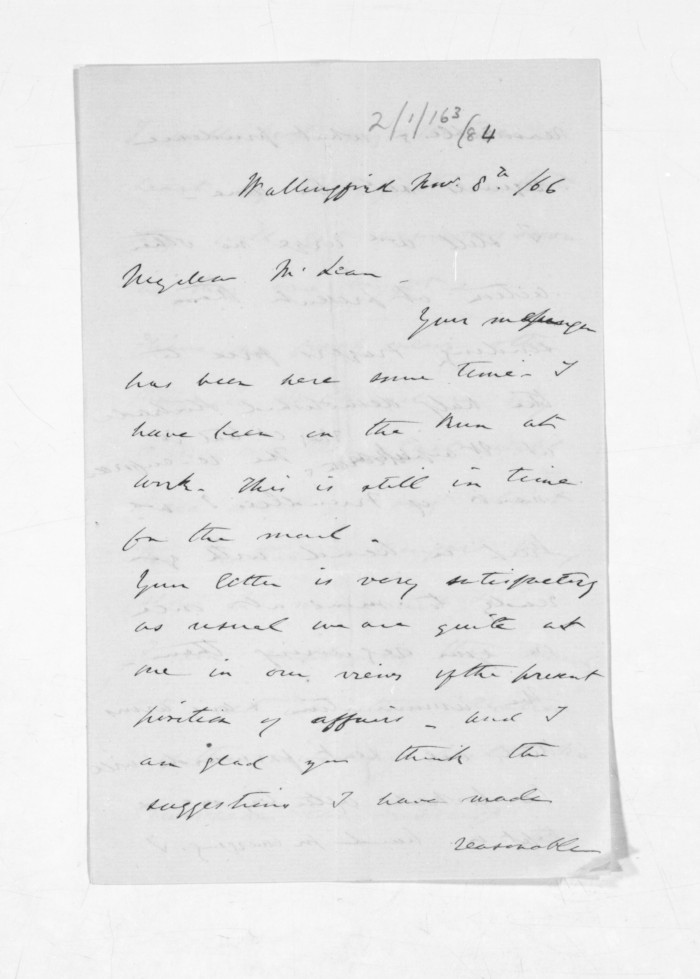 2/1/163/84
Wallingford Nov. 8th /66
My dear McLean
Your messenger
has been here some time - I
have been in the Run at
work. This is still in time
for the mail.
Your letter is very satisfactory
as usual we are quite at
one in our views of the present
position of affairs - and I
am glad you think the
suggestions I have made
reasonable